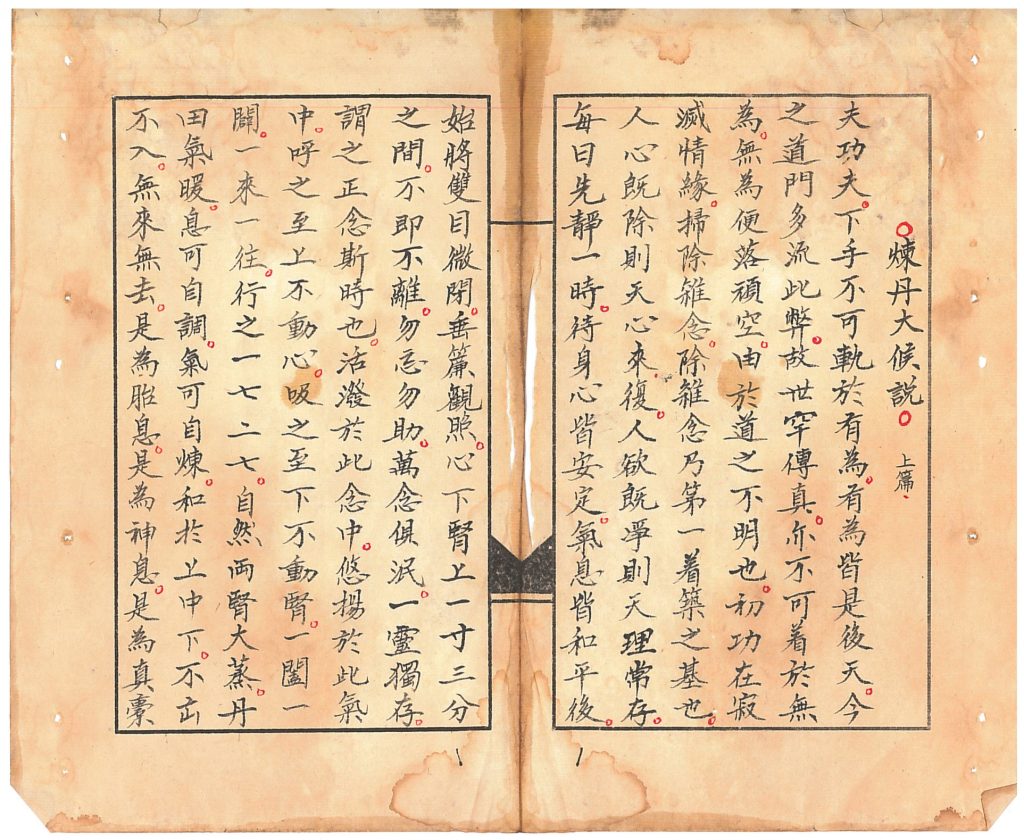 煉丹大候說 上篇
夫功夫。下手不可軌於有為。有為皆是後天今
之道門多流此弊。故世罕傳真。亦不可着於無
為。無為便落頑空。由於道之不明也。初功在寂
滅情緣。掃除雜念。除雜念乃第一着築之基也。
人心既除則天心來復。人欲既淨則天理常存。
每日先靜一時。待身心皆安定。氣息皆和平後。
始將雙目微閉。垂簾觀照。心下腎上一寸三分
之間。不即不離。勿忘勿助。萬念俱泯。一靈獨存。
謂之正念斯時也。活潑於此念中。悠揚於此氣
中。呼之至上不動心。吸之至下不動腎。一闔一
闢。一來一往。行之一七二七。自然両腎大蒸。丹
田氣暖。息可自調。氣可自煉。和於上中下。不出
不入。無來無去。是為胎息。是為神息。是為真橐